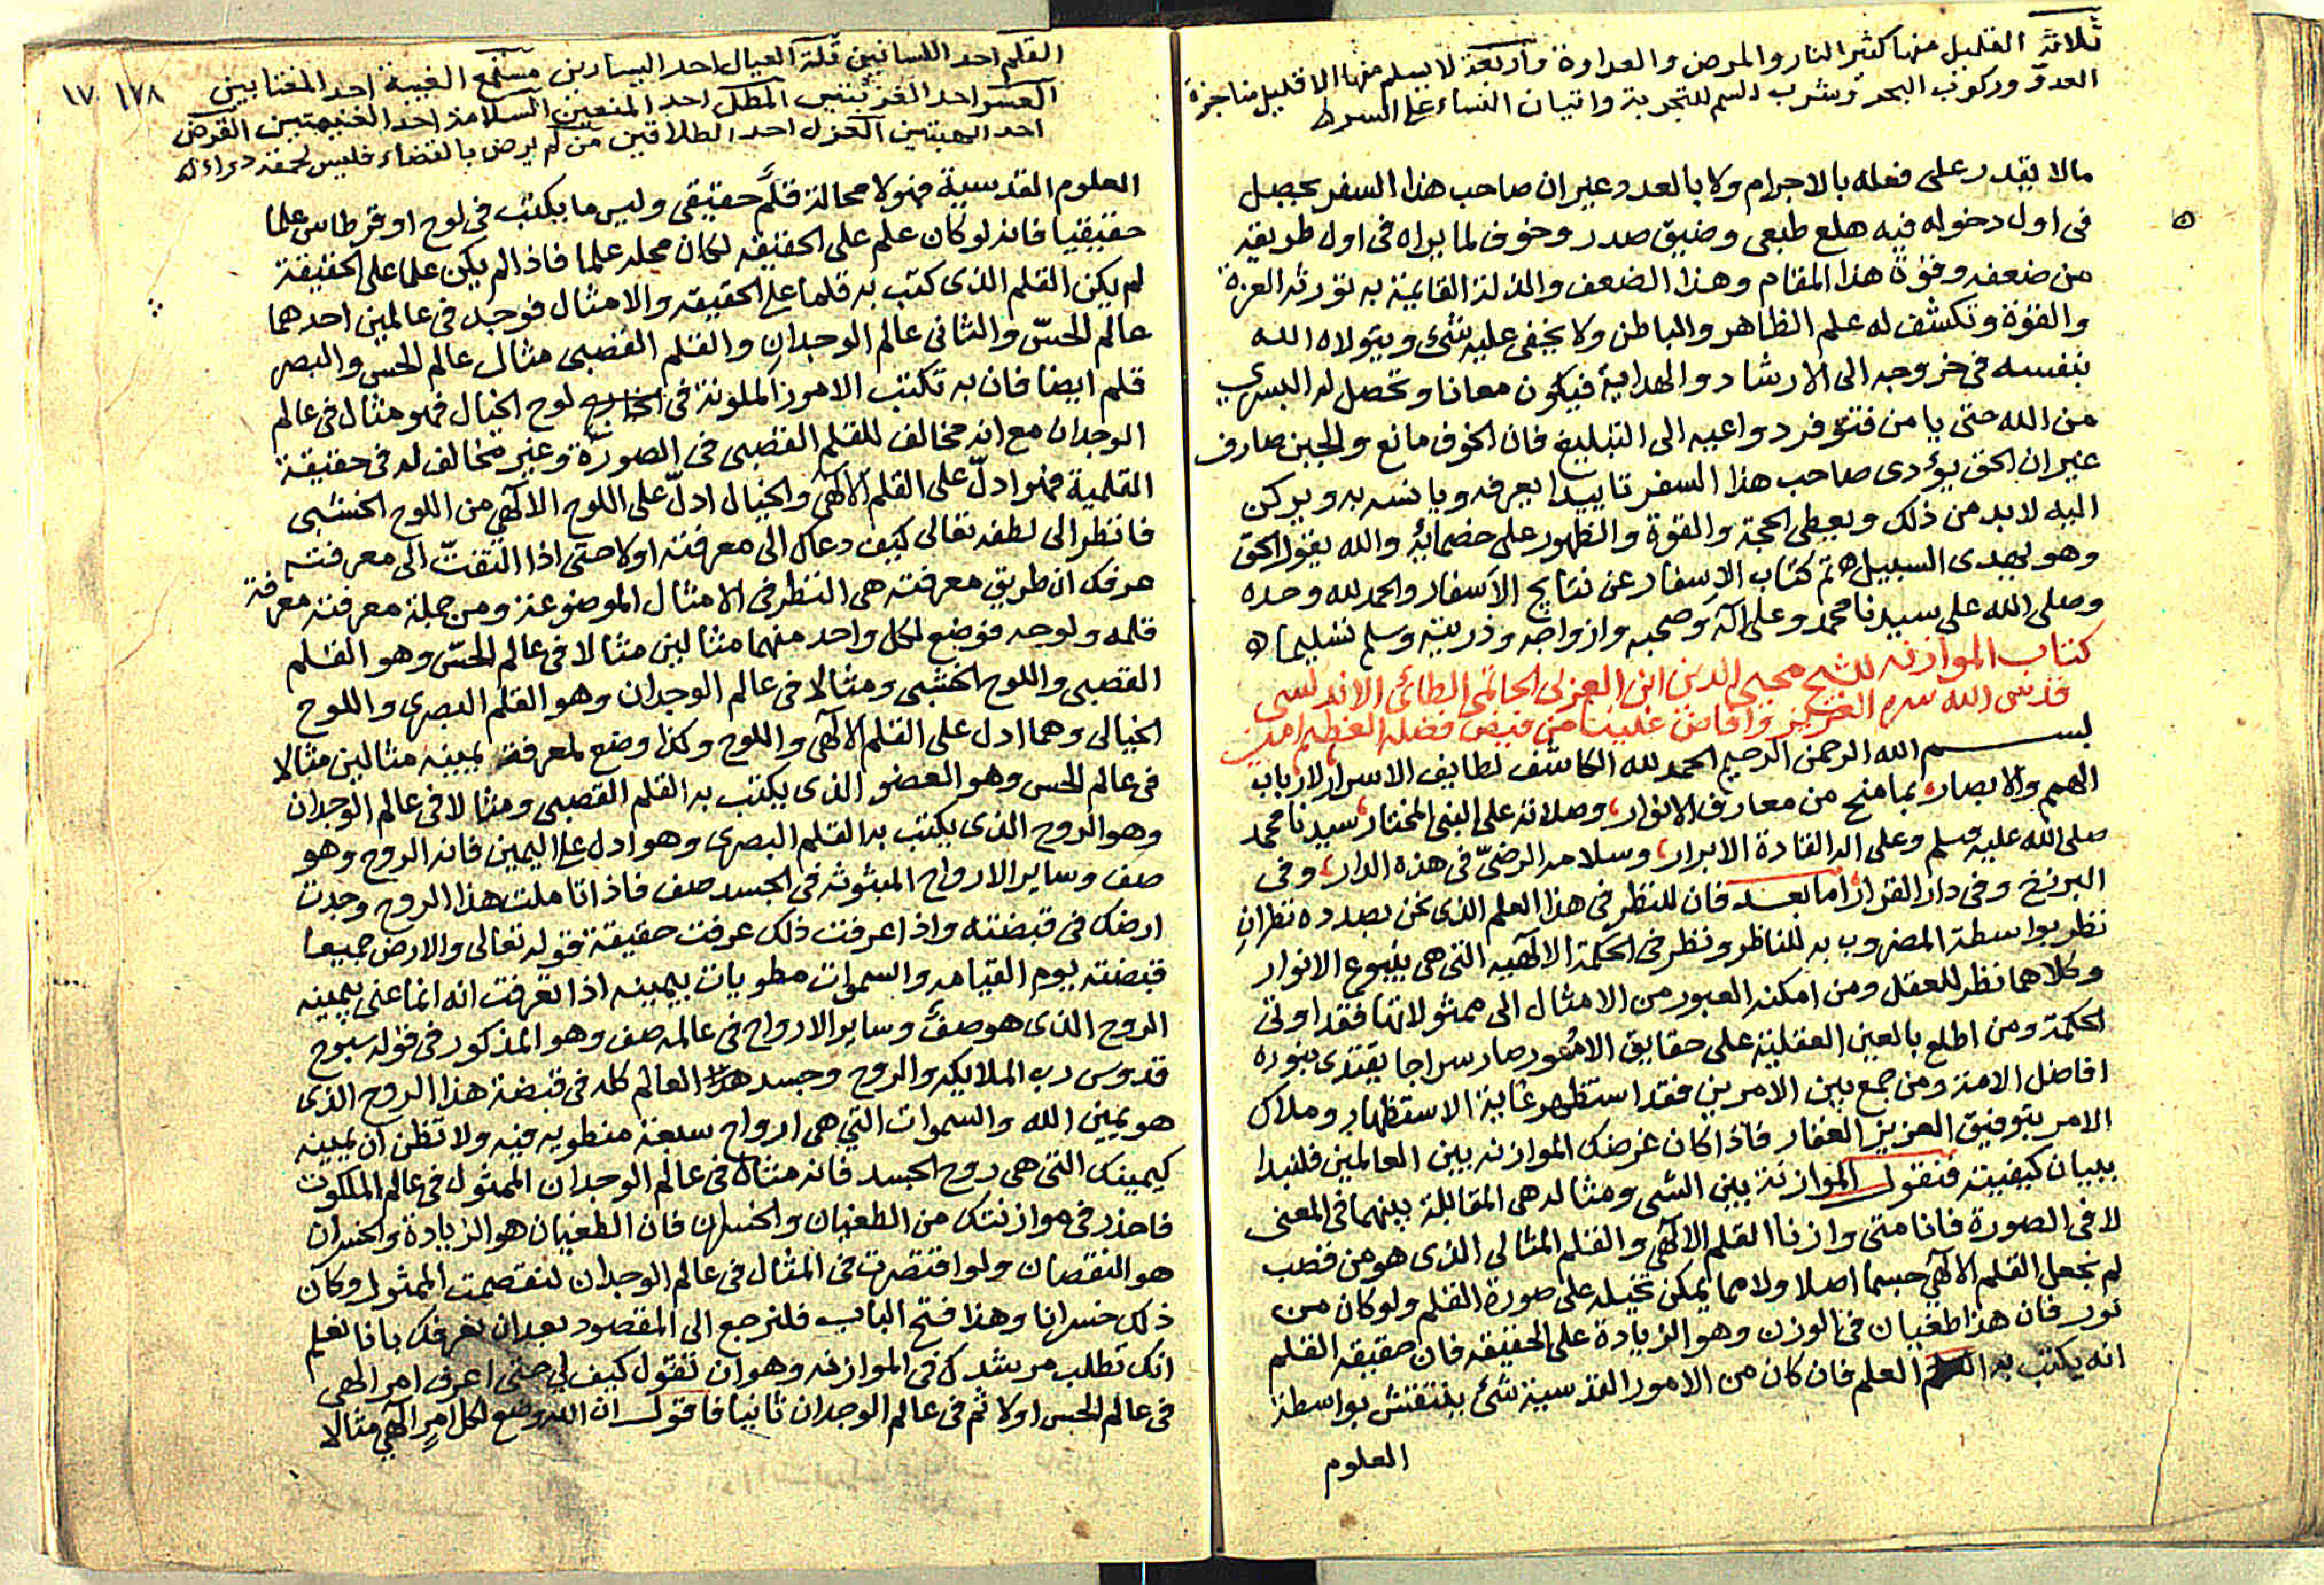 ثلاثة القليل منها كثير النار والمرض والعداوة وأربعة لا يسلم منها الا قليل مناجزة
العدو وركوب البحر وشرب السم للتجربة وائتمان النساء على السر
مالا يقدر على فعله بالاجرام ولا بالعدد وغير ان صاحب هذا السفر يحصل
فى اول دخوله فيه هلع طبعى وضيق صدر وخوف لما يراه فى اول طريقه
من ضعفه وقوة هذا المقام وهذا الضعف والذلة القايمة به تورثه العزة
والقوة وتكشف له علم الظاهر والباطن ولا يخفى عليه شئ ويتولاه الله
بنفسه فى خروجه الى الارشاد والهداية فيكون معانا وتحصل له البشرى
من الله حتى يامن فتتوفر دواعيه الى التبليغ فان الخوف مانع والجبن صارف
غير ان الحق يؤدى صاحب هذا السفر تاييدا يعرفه ويانس به ويركن
اليه لابد من ذلك ويعطى الحجة والقوة والظهور على خصمائه والله يقول الحق
وهو يهدى السبيل تم كتاب الاسفار عن نتايج الاسفار والحمد لله وحده
وصلى الله على سيدنا محمد وعلى آله وصحبه وازواجه وذريته وسلم تسليما
كتاب الموازنه للشيخ محيى الدين ابن العربى الحاتمى الطائى الاندلسى
قدس الله سره العزيز وافاض علينا من فيض فضله العظيم امين
بسم الله الرحمن الرحيم الحمد لله الكاشف لطايف الاسرار لارباب
الهمم والابصار بما منح من معارف الانوار وصلاته على النبى المختار سيدنا محمد
صلى الله عليه وسلم وعلى اله القادة الابرار وسلامه الرضىّ فى هذه الدار وفى
البرزخ وفى دار القرار اما بعد فان للنظر فى هذا العلم الذى نحن بصدده نظران
نظر بواسطة المضروب به للناظر ونظر فى الحكمة الالهيه التى هى ينبوع الانوار
وكلاهما نظر للعقل ومن امكنه العبور من الامثال الى ممثولاتها فقد اوتى
الحكمة ومن اطلع بالعين العقلية على حقايق الامور صار سراجا يقتدى بنوره
افاضل الامة ومن جمع بين الامرين فقد استظهر غاية الاستظهار وملاك
الامر بتوفيق العزيز الغفار فاذا كان غرضك الموازنه بين العالمين فلنبدا
ببيان كيفيته فنقول الموازنة بين الشى ومثاله هى المقابلة بينهما فى المعنى
لا فى الصورة فانا متى وازنا القلم الالهى والقلم المثالى الذى هو من قصب
لم نجعل القلم الالهى جسما اصلا ولا مما يمكن تخيله على صورة القلم ولو كان من
نور فان هذا طغيان فى الوزن وهو الزيادة على الحقيقه فان حقيقه القلم
انه يكتب به العلم فان كان من الامور القدسية شئ ينتقش بواسطة
العلوم
١٧٨ ١٧
القلم احد اللسانين قلة العيال احد اليسارين مستمع الغيبة احد المغتابين
المطل احد المنعين السلامة احد الغنيمتين القرض
احد الهبتين العزل احد الطلاقين من لم يرض بالقضاء فليس لحمقه دواء
العلوم القدسية فهو لا محالة قلم حقيقى وليس ما يكتب فى لوح او قرطاس علما
حقيقيا فانه لو كان علم على الحقيقه لكان محله علما فاذا لم يكن علما على الحقيقة
لم يكن القلم الذى كتب به قلما على الحقيقه والامثال فوجد فى عالمين احدهما
عالم الحسّ والثانى عالم الوجدان والقلم القصبى مثال عالم الحس والبصر
قلم ايضا فان به تكتب الامور الملونة فى لوح الخيال فهو مثال فى عالم
الوجدان مع انه مخالف للقلم القصبى فى الصورة وغير مخالف له فى حقيقة
القلمية فهو ادلّ على القلم الالهى والخيال ادلّ على اللوح الالهى من اللوح الخشبى
فانظر الى لطفه تعالى كيف دعاك الى معرفته اولا حتى اذا التفتّ الى معرفته
عرفك ان طريق معرفته هى النظر فى الامثال الموضوعة ومن جملة معرفته معرفة
قلمه ولوحه فوضع لكل واحد منهما مثالين مثالا فى عالم الحسّ وهو القلم
القصبى واللوح الخشبى ومثالا فى عالم الوجدان وهو القلم البصرى واللوح
الخيالى وهما ادل على القلم الالهى واللوح وكذا وضع لمعرفة يمينه مثالين مثالا
فى عالم الحس وهو العضو الذى يكتب به القلم القصبى ومثالا فى عالم الوجدان
وهو الروح الذى يكتب به القلم البصرى وهو ادل على اليمين فانه الروح وهو
صف وساير الارواح المبثوثه فى الجسد صف فاذا تاملت هذا الروح وجدت
ارضك فى قبضته واذا عرفت ذلك عرفت حقيقة قوله تعالى والارض جميعا
قبضته يوم القيامه والسموات مطويات بيمينه اذا تعرفت انه انما عنى بيمينه
الروح الذى هو صف وساير الارواح فى عالمه صف وهو المذكور فى قوله سبوح
قدوس رب الملايكه والروح وجسد هذا العالم كله فى قبضة هذا الروح الذى
هو يمين الله والسموات التي هى ارواح سبعة منطويه فيه ولا تظن ان يمينه
كيمينك التى هى روح الجسد فانه مثال فى عالم الوجدان الممثول فى عالم الملكوت
فاحذر فى موازنتك من الطغيان والخسران فان الطغيان هو الزيادة والخسران
هو النقصان ولو اقتصرت فى المثال فى عالم الوجدان لنقصت الممثول وكان
ذلك خسرانا وهذا فتح الباب فلنرجع الى المقصود بعد ان نعرفك بانا نعلم
انك تطلب مرشدك فى الموازنه وهو ان تقول كيف لى حتى اعرف امر الهى
فى عالم الحس اولا ثم فى عالم الوجدان ثانيا فاقول ان الله وضع لكل امر الهى مثالا